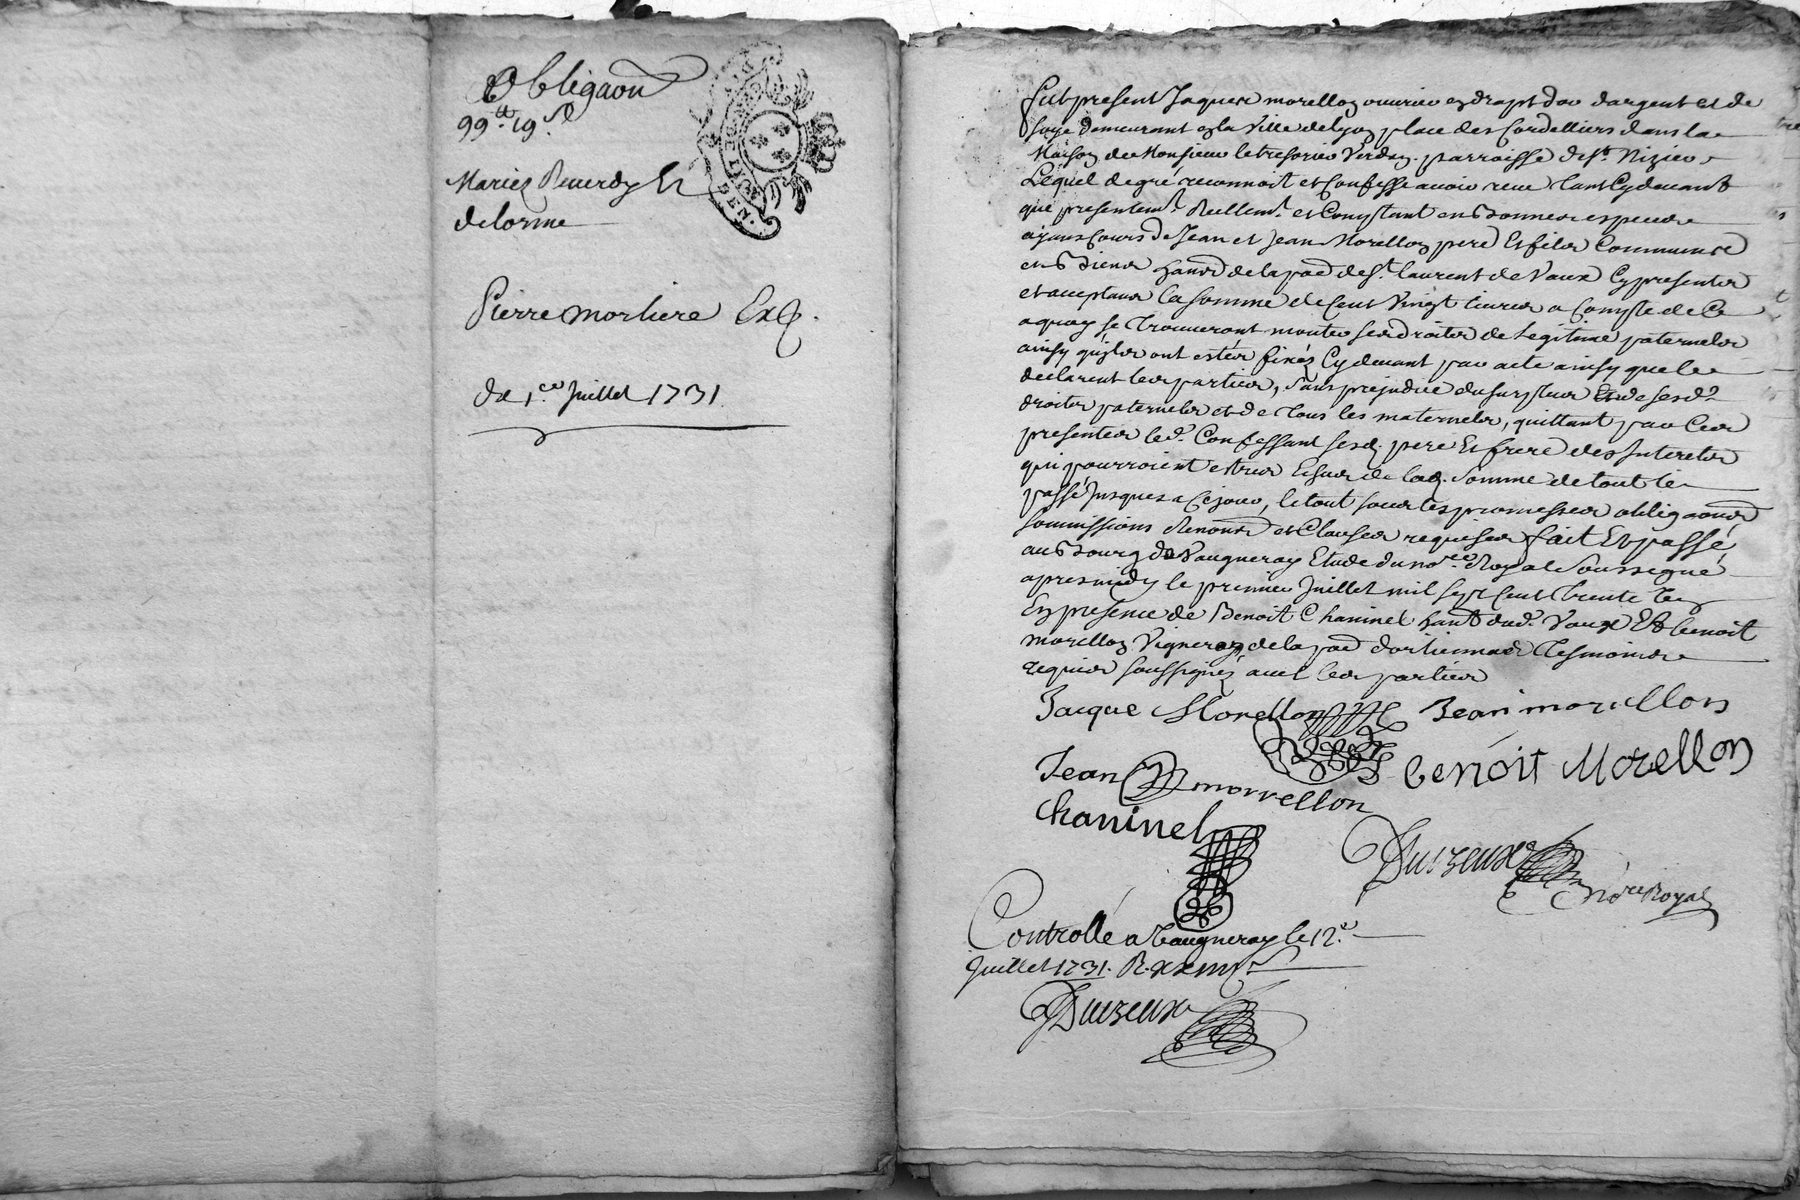 Obligaon
99ᵗᵗ 19ˢ
Mariez Reverdy Et
delorme
Pierre morliere Exp.
du 1.er Juillet 1731
DE LYON
GEN.
fut present Jaques morellon ouvrier en drapt d'or d'argent et de
soye demeurant en la ville de lyon place des Cordelliers dans la
Maison de Monsieur le tresorier Verdan parroisse de st. Nizier
Lequel de gre reconnoit et Confesse avoir receu tant Cy devant
que presentemt. Reellemt. et Comptant en bonnes especes
ayant Cours de Jean et Jean Morellon pere Et fils Communs
en biens habns de la poe de st. laurent de Vaux Cy presents
et acceptans la somme de Cent Vingt livres a Compte de Ce
a quoy se trouveront monter ses droits de Legitime paternels
ainsy qu'ils ont estés fixés Cy devant par acte ainsy que le
declarent les parties, sans prejudice du surplus Et de sesd.
droits paternels et de tous les maternels, quittant par Ces
presentes led. Confessant sesd. pere Et frere des Interets
qui pourroient estre deus de lad. somme de tout le
passé jusques a Ce jour, le tout sous les promesses obligaons
soumissions Renonons et Clauses requises fait Et passé
au bourg de Vaugneray Etude du nore. Royal soussigné
apres midy le premier Juillet mil sept Cent trente un
En presence de Benoit Chaninel habnt dud. Vaux Et benoit
morellon Vigneron de la poe d'orlienas tesmoins
requis soussignés avec les parties
Jacque Morellon Jean morellon
Jean morrellon benoit Morellon
Chaninel
Duizeux
nore Royal
Controllé a Vaugneray le 12.e
Juillet 1731. R.
Duizeux